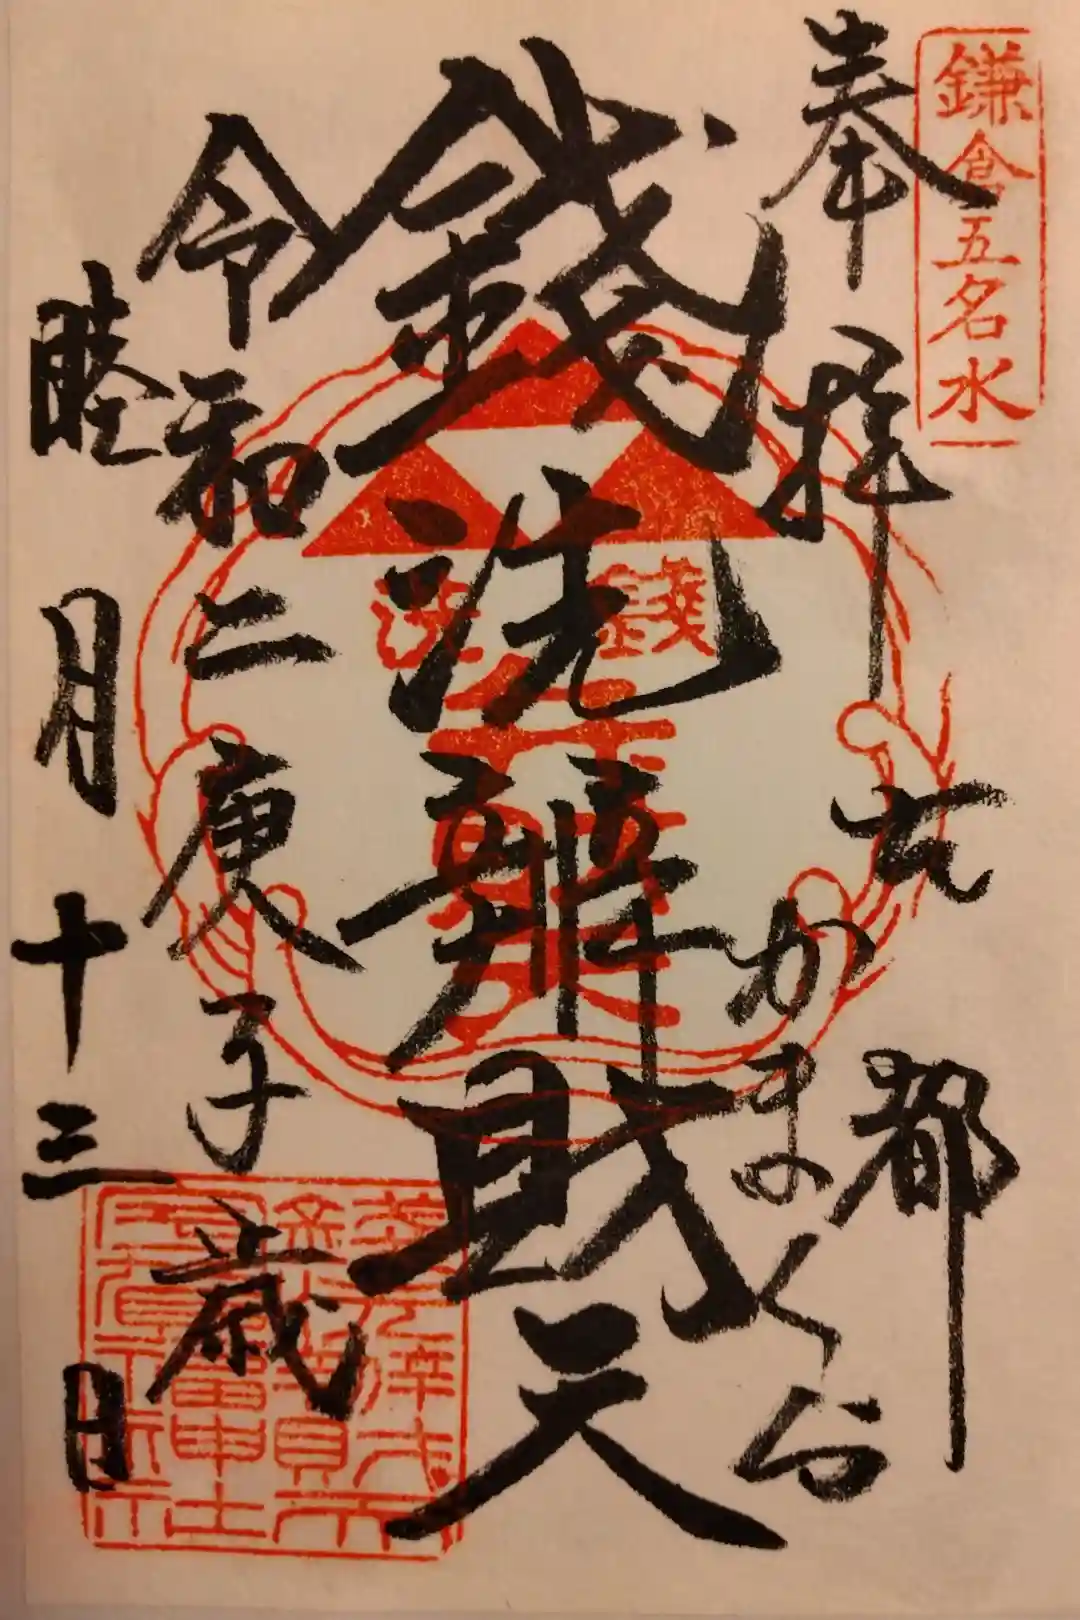 鎌倉五名水
奉拝
古都
かまくら
錢洗辨財天
錢洗
令和二庚子歳
睦月十三日